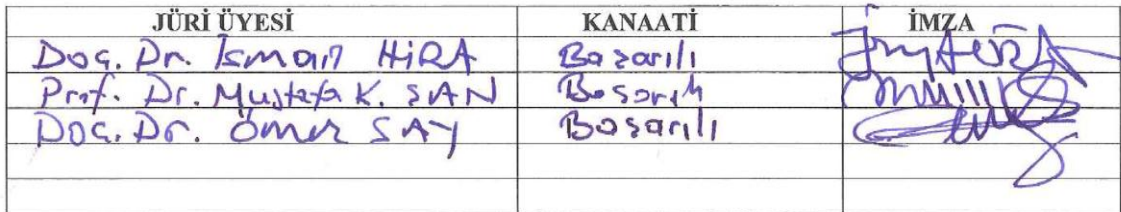 JÜRİ ÜYESİ KANAATİ İMZA
Doç. Dr. İsmail HİRA Başarılı
Prof. Dr. Mustafa K. ŞAN Başarılı
Doç. Dr. Ömer SAY Başarılı